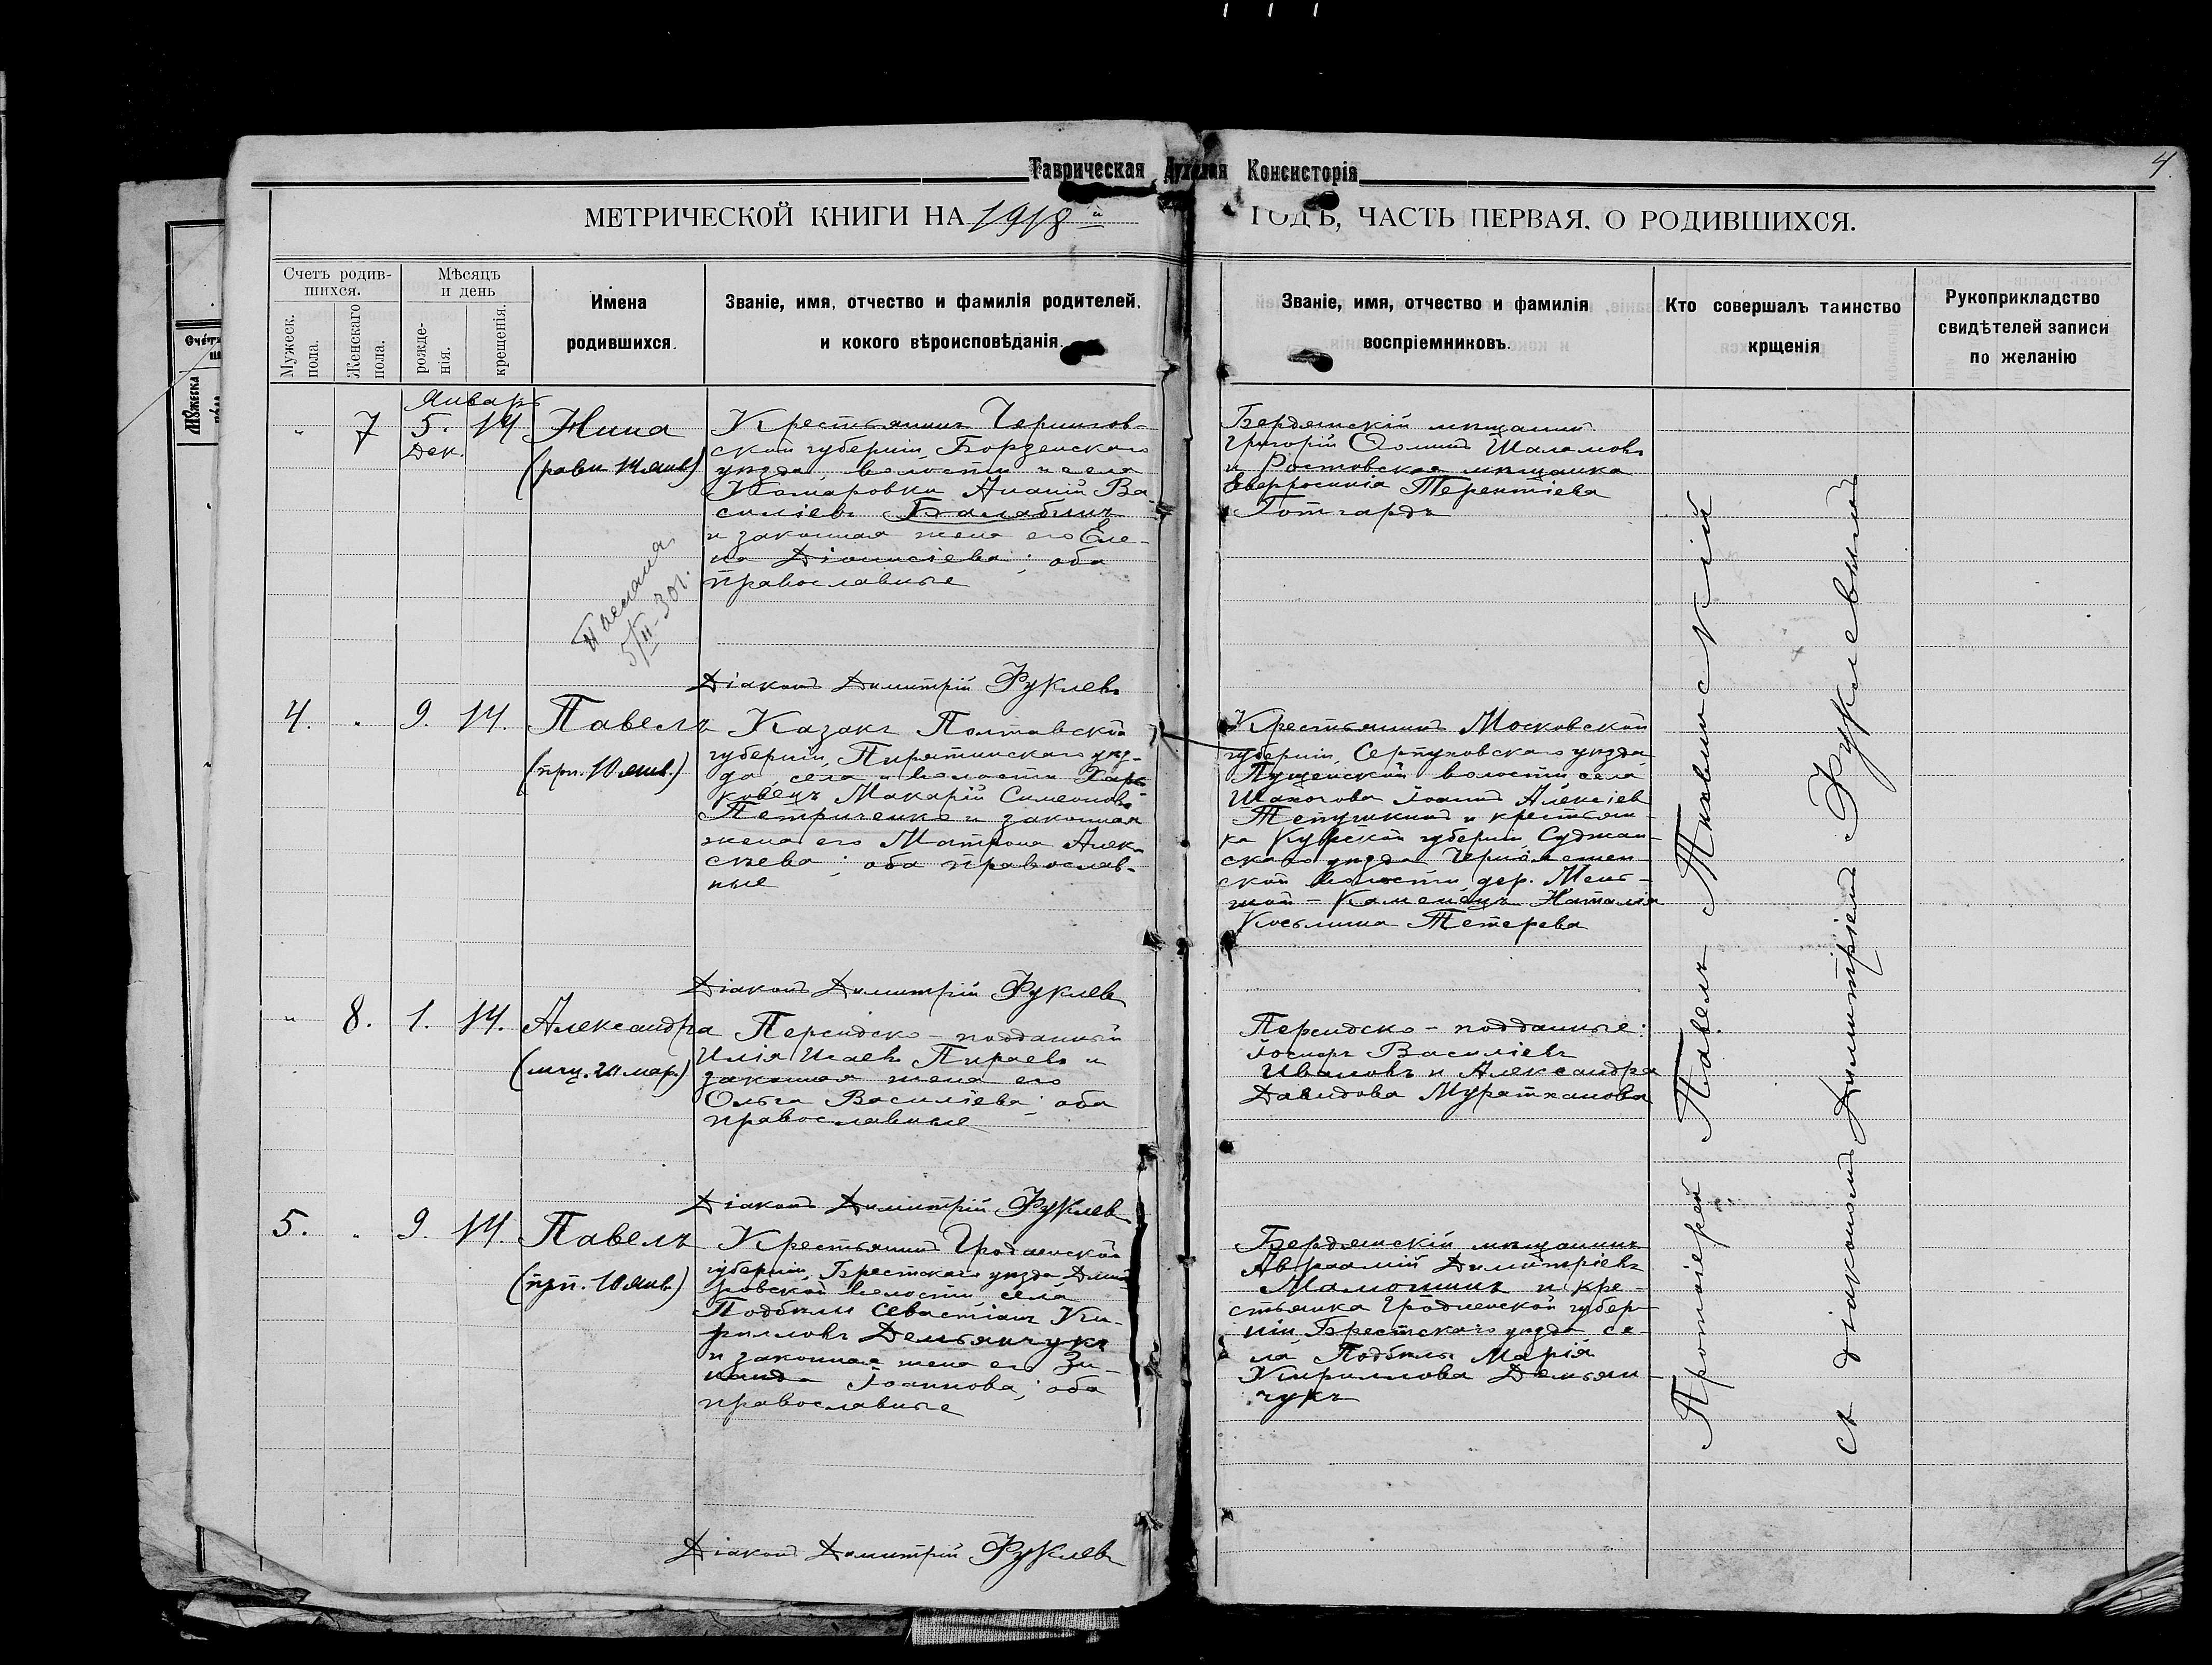 4
Таврическая Духовная Консисторія
МЕТРИЧЕСКОЙ КНИГИ НА 1918й ГОДЪ, ЧАСТЬ ПЕРВАЯ, О РОДИВШИХСЯ.
Счетъ родив-
шихся.
Мужеск.
пола.
Женскаго
пола.
Мѣсяцъ
и день
рожде-
нія.
крещенія.
Имена
родившихся.
Званіе, имя, отчество и фамилія родителей,
и кокого вѣроисповѣданія.
Званіе, имя, отчество и фамилія
воспріемниковъ.
Кто совершалъ таинство
крщенія
Рукоприкладство
свидѣтелей записи
по желанію
Январь
" 7 5. 14 Нина
Дек.
(равн 14 янв)
Крестьянинъ Чернигов-
ской губерніи, Борзенскаго
уѣзда, волости и села
Комаровки Ананій Ва-
силіевъ Балабинъ
и законная жена его Еле-
на Діонисіева; оба
православные
5/II-30г.
Діаконъ Димитрій Фуклевъ
Бердянскій мѣщанинъ
Григорій Шаламовъ
и Ростовская мѣщанка
Евфросинія Терентіева
Готгардъ
4. " 9. 14. Павелъ
(прп. 10 янв.)
Казакъ Полтавской
губерніи, Пирятинскаго уѣз-
да, села и волости Харь-
ковецъ Макарій Симеоновъ
Петриченко и законная
жена его Матрона Алек-
сѣева; оба православ-
ные
Діаконъ Димитрій Фуклевъ
Крестьянинъ Московской
губерніи, Серпуховскаго уѣзда
волости села
Іоаннъ Алексіев
и крестьян-
ка Курской губерніи, Суджан-
скаго уѣзда
ской волости, дер.
Каменецъ Наталія
Козьмина Тетерева
" 8. 1. 14. Александра
(мчц. 20 мар.)
Персидско-подданный
Илія Исаевъ Пираевъ и
законная жена его
Ольга Василіева; оба
православные
Діаконъ Димитрій Фуклевъ
Персидско-подданные:
Іосифъ Василіевъ
Ивановъ и Александра
Давидова Муратханова
5. " 9. 14 Павелъ
(прп. 10 янв.)
Крестьянинъ Гродненской
губерніи, Брестскаго уѣзда, Дми-
ровской волости села
Подбѣлы Севастіанъ Ки-
рилловъ Демьянчукъ
и законная жена его Зи-
наида Іоаннова; оба
православные
Діаконъ Димитрій Фуклевъ
Бердянскій мѣщанинъ
Авраамій Димитріевъ
Мамошинъ и кре-
стьянка Гродненской губер-
ніи, Брестскаго уѣзда, се-
ла Подбѣлы Марія
Кириллова Демьян-
чукъ
Протоіерей Павелъ
съ діакономъ Димитріемъ Фуклевымъ